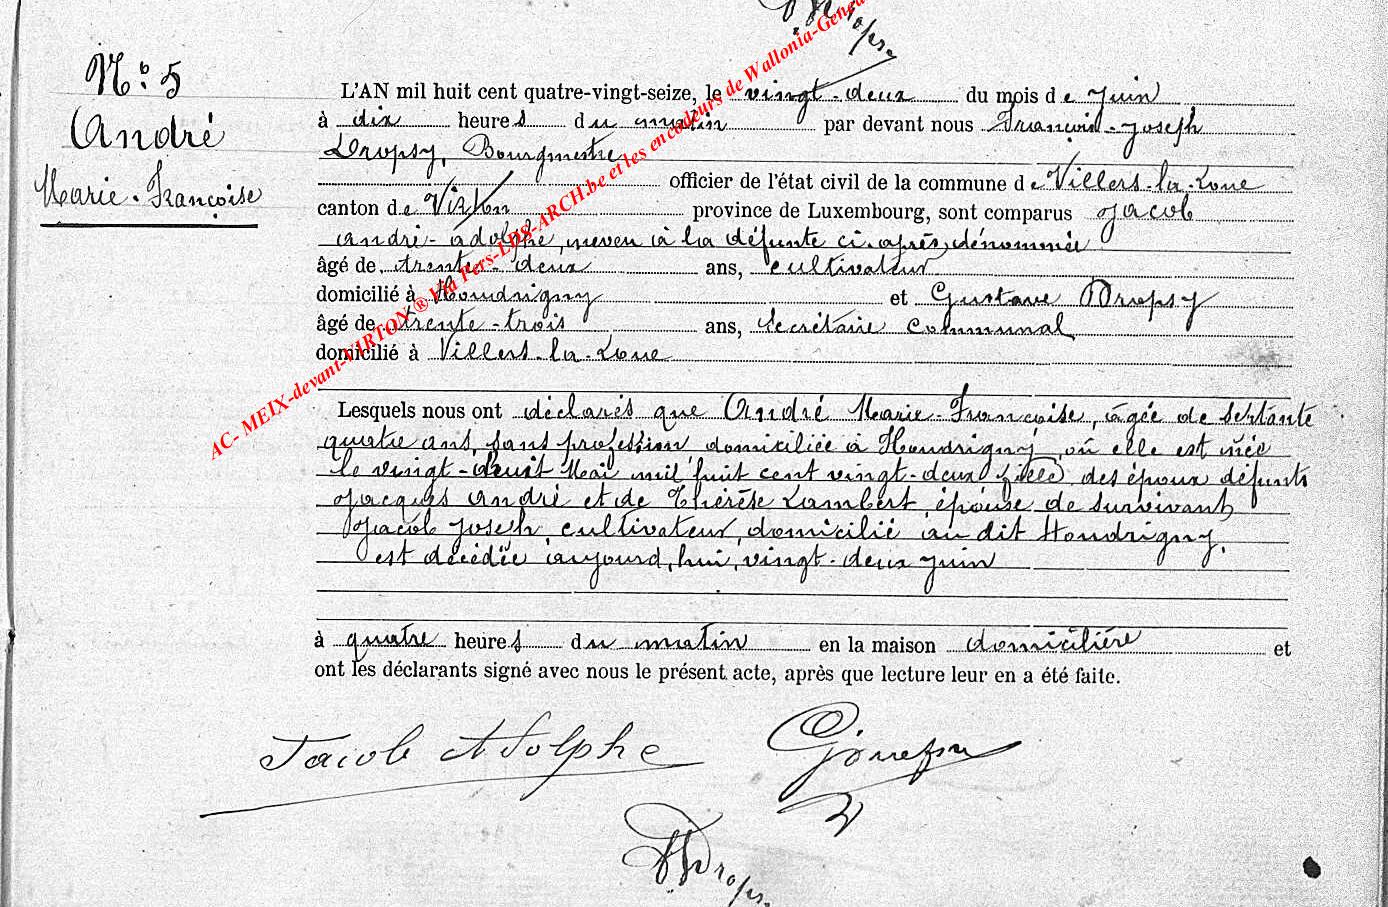 Dropsy
N.° 5
André
Marie-Françoise
L'AN mil huit cent quatre-vingt-seize, le vingt-deux du mois de Juin
à dix heures du matin par devant nous François-Joseph
Dropsy, Bourgmestre
officier de l'état civil de la commune de Villers-la-Loue
canton de Virton province de Luxembourg, sont comparus Jacob
André-Adolphe, neveu à la défunte ci-après dénommée
âgé de trente-deux ans, cultivateur
domicilié à Houdrigny et Gustave Dropsy
âgé de trente-trois ans, Secrétaire communal
domicilié à Villers-la-Loue
Lesquels nous ont déclarés que André Marie-Françoise, âgée de septante
quatre ans, sans profession, domiciliée à Houdrigny, où elle est née
le vingt-huit Mai mil huit cent vingt-deux fille des époux défunts
Jacques André et de Thérèse Lambert, épouse de survivant
Jacob Joseph, cultivateur, domicilié au dit Houdrigny,
est décédée aujourd'hui, vingt-deux Juin
à quatre heures du matin en la maison domicilière et
ont les déclarants signé avec nous le présent acte, après que lecture leur en a été faite.
Jacob Adolphe
Dropsy
AC- MEIX-devant-VIRTON ® Via Pers-LDS-ARCH.be et les encodeurs de Wallonia-Genea